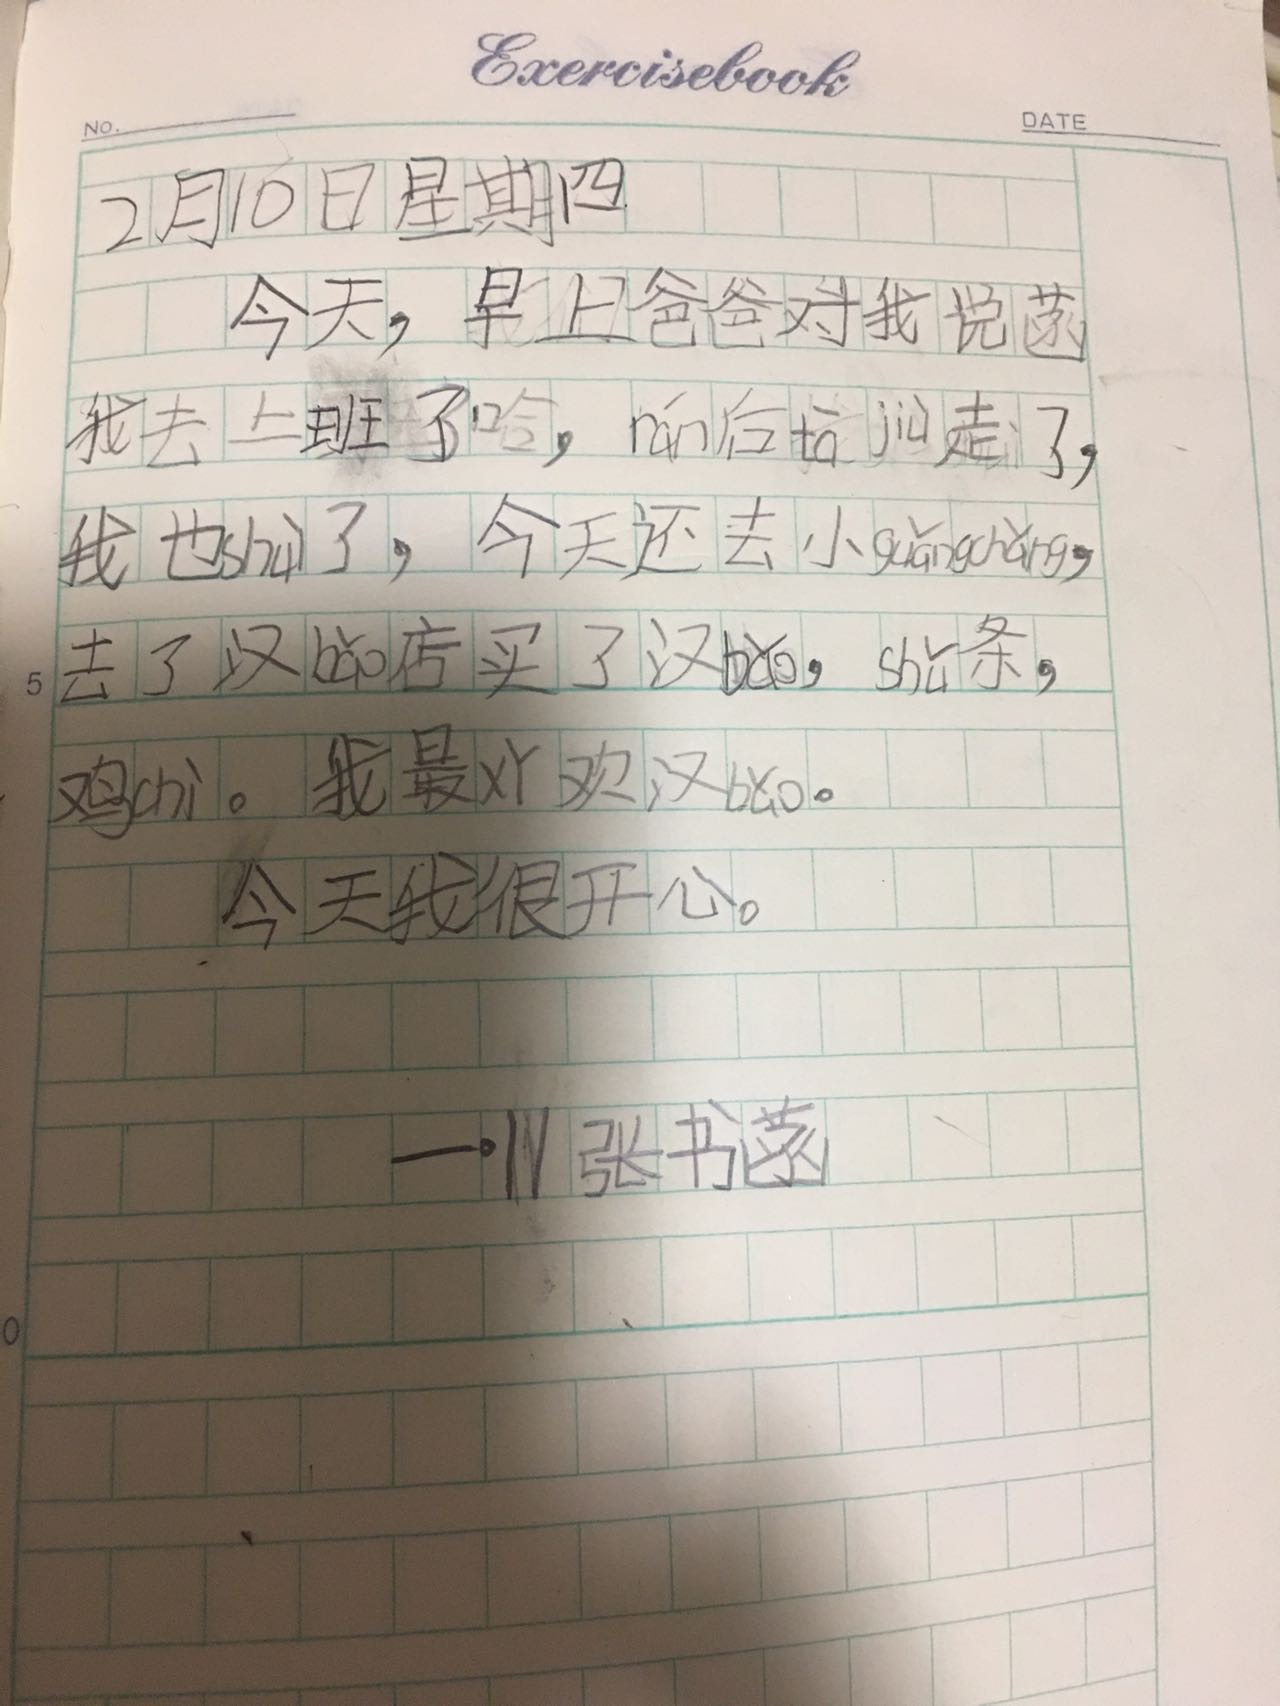 Exercisebook
NO. DATE
2月10日星期四
今天，早上爸爸对我说菡
我去上班了哈，rán后tā jiù走了，
我也shuì了，今天还去小guǎngchǎng，
5 去了汉bǎo店买了汉bǎo，shǔ条，
鸡chì。我最xǐ欢汉bǎo。
今天我很开心。
张书菡
0